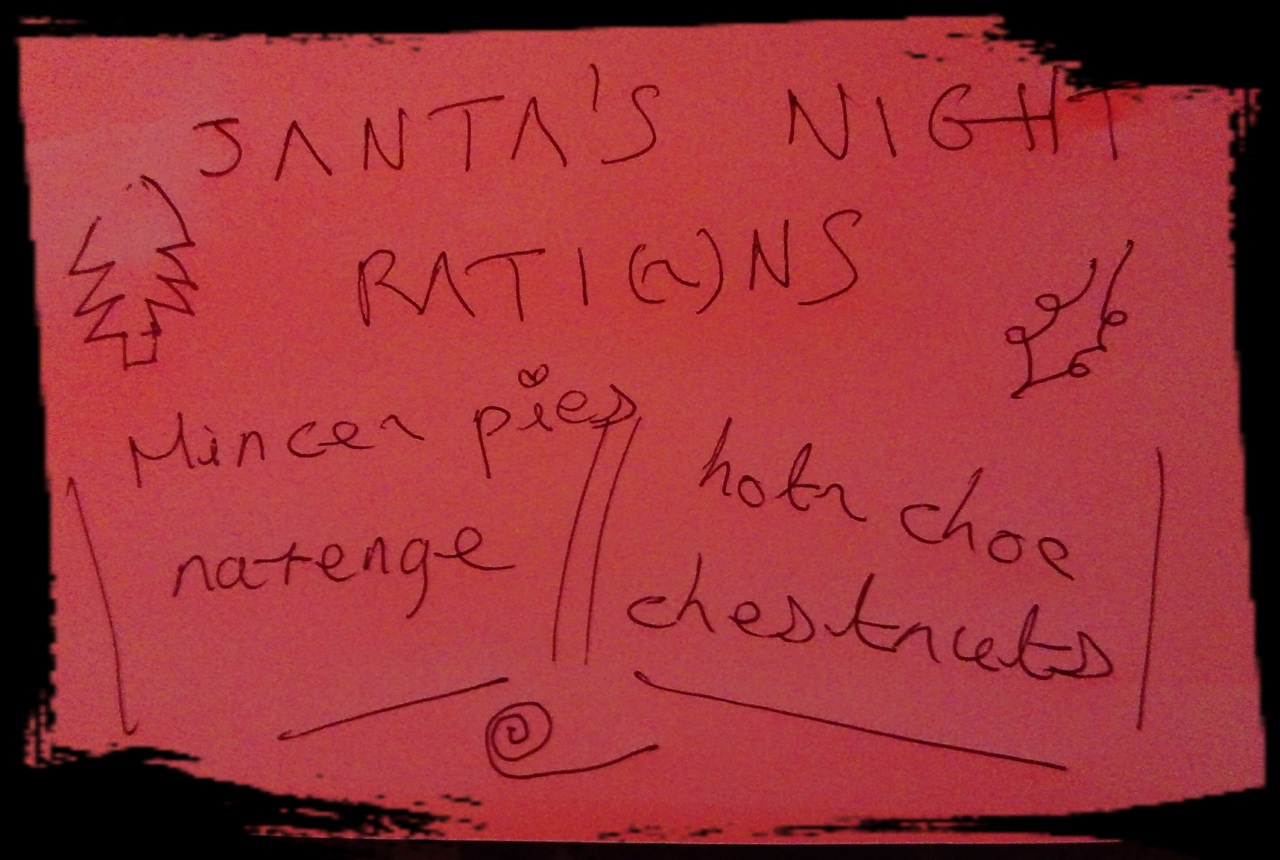 SANTA'S NIGHT
RATI(~)NS
Mincer pies
natenge
hotr choc
chestnuts